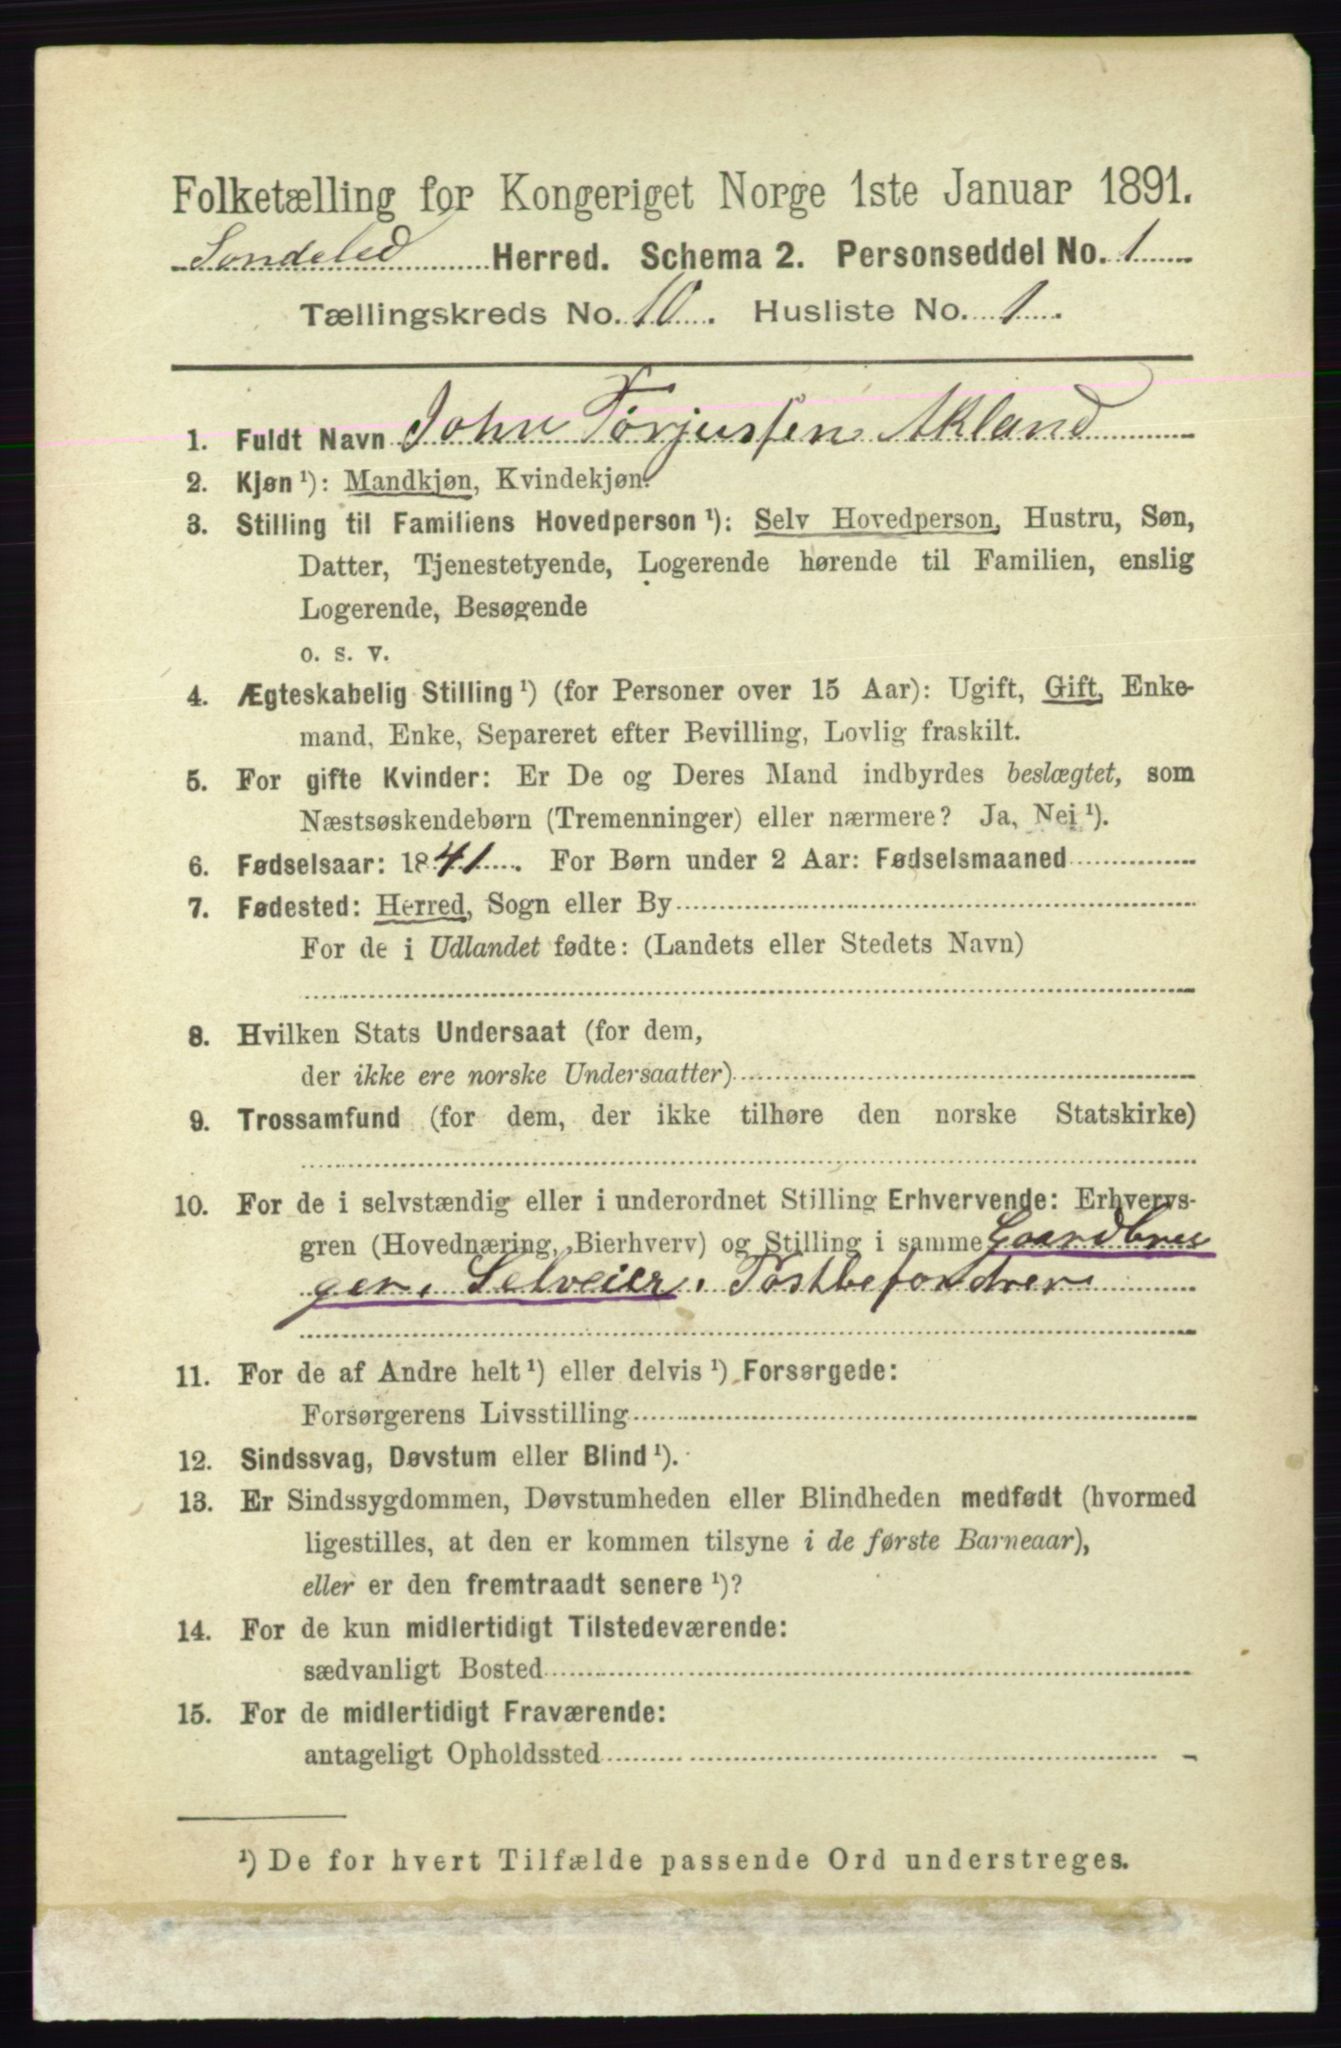 Folketælling for Kongeriget Norge 1ste Januar 1891.
Søndeled Herred. Schema 2. Personseddel No. 1
Tællingskreds No. 10. Husliste No. 1.
1. Fuldt Navn John Torjussen Akland
2. Kjøn ¹): Mandkjøn, Kvindekjøn.
3. Stilling til Familiens Hovedperson ¹): Selv Hovedperson, Hustru, Søn,
Datter, Tjenestetyende, Logerende hørende til Familien, enslig
Logerende, Besøgende
o. s. v.
4. Ægteskabelig Stilling ¹) (for Personer over 15 Aar): Ugift, Gift, Enke-
mand, Enke, Separeret efter Bevilling, Lovlig fraskilt.
5. For gifte Kvinder: Er De og Deres Mand indbyrdes beslægtet, som
Næstsøskendebørn (Tremenninger) eller nærmere? Ja, Nei ¹).
6. Fødselsaar: 1841. For Børn under 2 Aar: Fødselsmaaned
7. Fødested: Herred, Sogn eller By
For de i Udlandet fødte: (Landets eller Stedets Navn)
8. Hvilken Stats Undersaat (for dem,
der ikke ere norske Undersaatter)
9. Trossamfund (for dem, der ikke tilhøre den norske Statskirke)
10. For de i selvstændig eller i underordnet Stilling Erhvervende: Erhvervs-
gren (Hovednæring, Bierhverv) og Stilling i samme Gaardbru
ger, Selveier, Postbefordrer
11. For de af Andre helt ¹) eller delvis ¹) Forsørgede:
Forsørgerens Livsstilling
12. Sindssvag, Døvstum eller Blind ¹).
13. Er Sindssygdommen, Døvstumheden eller Blindheden medfødt (hvormed
ligestilles, at den er kommen tilsyne i de første Barneaar),
eller er den fremtraadt senere ¹)?
14. For de kun midlertidigt Tilstedeværende:
sædvanligt Bosted
15. For de midlertidigt Fraværende:
antageligt Opholdssted
¹) De for hvert Tilfælde passende Ord understreges.